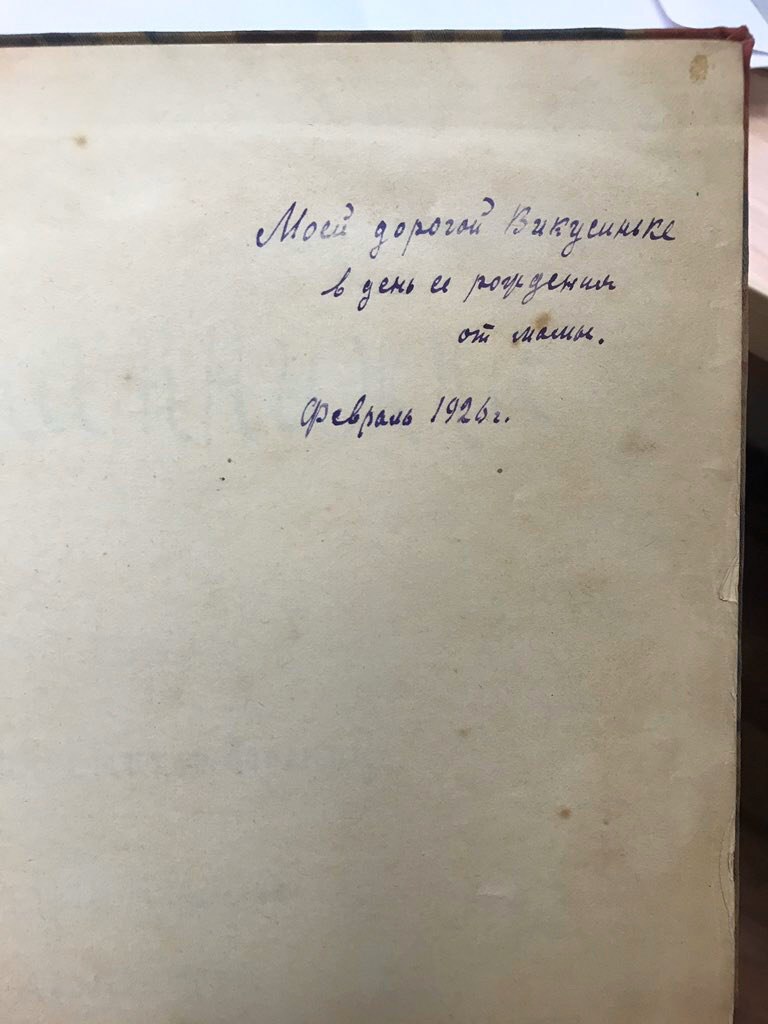 Моей дорогой Викусиньке
в день ее рождения
от мамы.
Февраль 1926г.